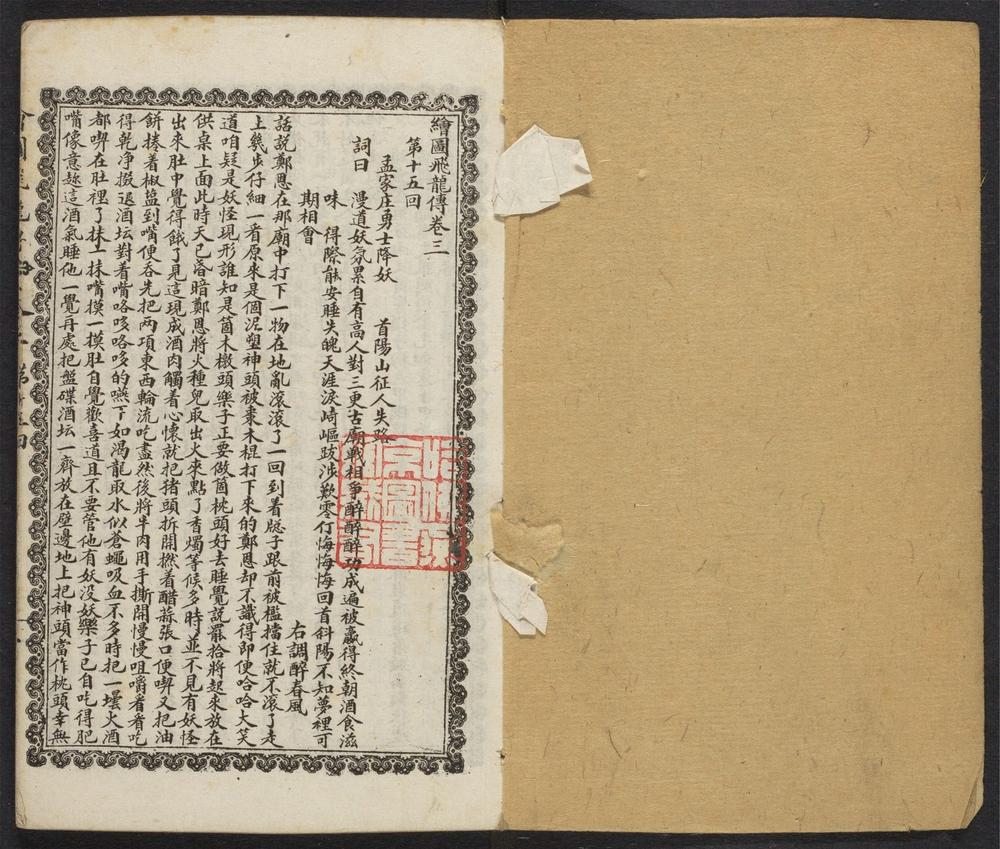 繪圖飛龍傳卷三
第十五回
孟家庄勇士降妖　首陽山征人失路
詞曰　漫道妖氛累自有高人對三更古廟戰相爭醉醉醉功成遍被贏得終朝酒食滋
味　得際能安睡失魄天涯淚崎嶇跋涉歎零仃悔悔悔回首斜陽不知夢裡可
期相會　右調醉春風
話說鄭恩在那廟中打下一物在地亂滾滾了一回到着櫈子跟前被檻擋住就不滾了走
上幾步仔細一看原來是個泥塑神頭被棗木棍打下來的鄭恩却不識得即便哈哈大笑
道咱疑是妖怪現形誰知是箇木橔頭樂子正要做箇枕頭好去睡覺說罷拾將起來放在
供桌上面此時天已昏暗鄭恩將火種兒取出火來點了香燭等候多時並不見有妖怪
出來肚中覺得餓了見這現成酒肉觸着心懷就把猪頭拆開撚着醋蒜張口便喫又把油
餅捲着椒塩到嘴便吞先把两項東西輪流吃盡然後將羊肉用手撕開慢慢咀嚼看看吃
得乾净掇退酒坛對着嘴咯咳咯哆的嚥下如渴龍取水似倉蠅吸血不多時把一壜火酒
都喫在肚裡了抹一抹嘴摸一摸肚自覺歡喜道且不要管他有妖沒妖樂子已自吃得肥
嘴像意趂這酒氣睡他一覺再處把盤碟酒坛一齊放在壁邊地上把神頭當作枕頭幸無